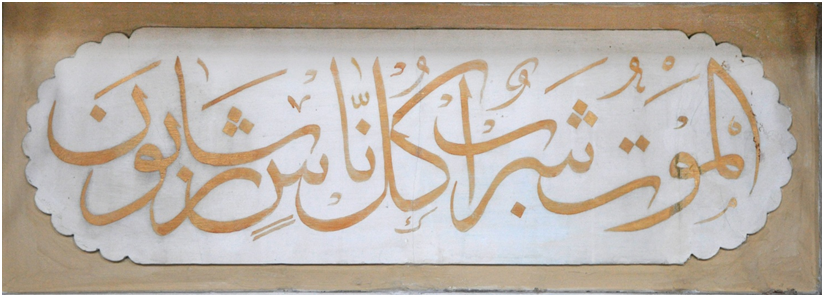 الموت شراب كل ناس شاربون